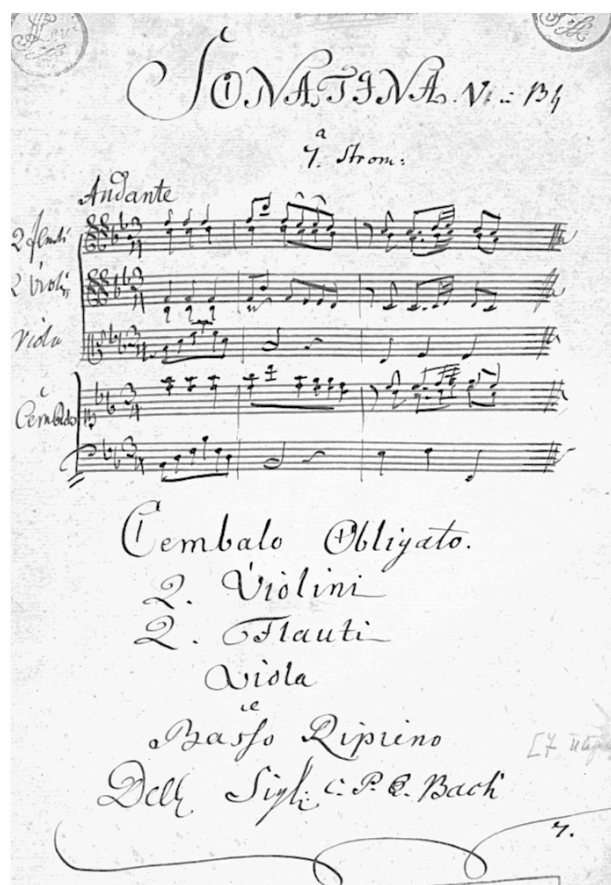 SONATINA. N: 134
a
7. Strom:
Andante
2 flauti
2 violi
Viola
e
Cembalo
Cembalo Obligato.
2. Violini
2. Flauti
Viola
e
Basso Ripieno
Dell Sigl: C. P. E. Bach
7.